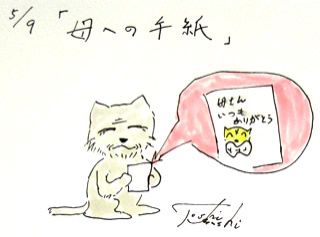 5/9 「母への手紙」
母さん
いつも
ありがとう
Toshi